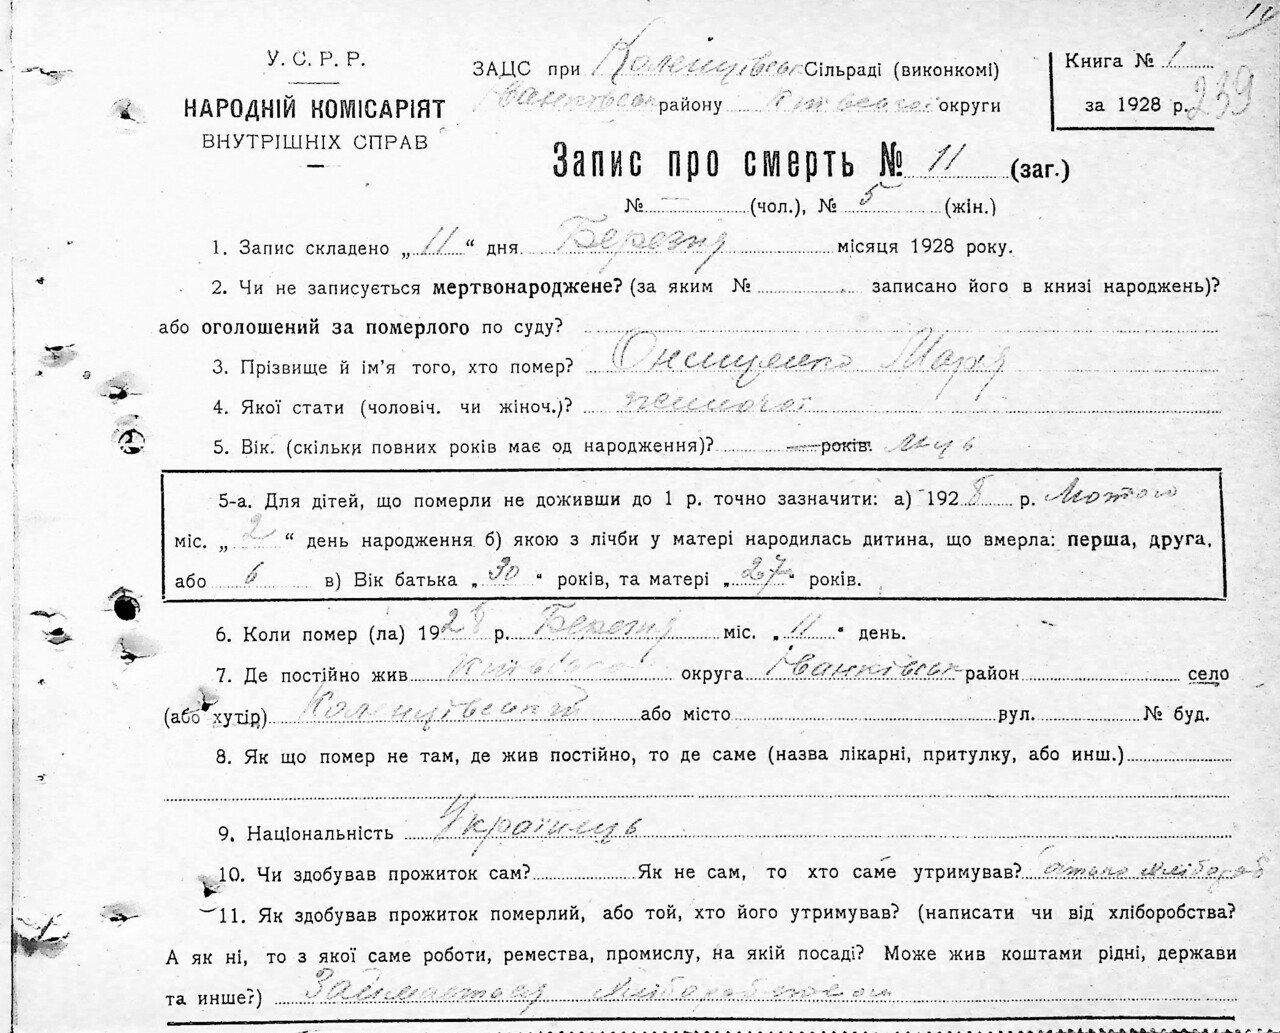 У. С. Р. Р.
НАРОДНІЙ КОМІСАРІЯТ
ВНУТРІШНІХ СПРАВ
ЗАЦС при Коленцівськ Сільраді (виконкомі)
Іванківськ району Київської округи
Книга № 1
за 1928 р. 239
Запис про смерть № 11 (заг.)
№ — (чол.), № 5 (жін.)
1. Запис складено „ 11 “ дня Березня місяця 1928 року.
2. Чи не записується мертвонароджене? (за яким № записано його в книзі народжень)?
або оголошений за померлого по суду?
3. Прізвище й ім’я того, хто помер? Онищенко Марія
4. Якої стати (чоловіч. чи жіноч.)? жіночої
5. Вік. (скільки повних років має од народження)? років.
5-а. Для дітей, що померли не доживши до 1 р. точно зазначити: а) 1928 р. Лютого
міс. „ 2 “ день народження б) якою з лічби у матері народилась дитина, що вмерла: перша, друга,
або 6 в) Вік батька „ 30 “ років, та матері „ 27 “ років.
6. Коли помер (ла) 1928 р. Березня міс. „ 11 “ день.
7. Де постійно жив Київсько округа Іванківськ район село
(або хутір) Коленцівський або місто вул. № буд.
8. Як що помер не там, де жив постійно, то де саме (назва лікарні, притулку, або инш.)
9. Національність Українець
10. Чи здобував прожиток сам? Як не сам, то хто саме утримував? батько хлібороб
11. Як здобував прожиток померлий, або той, хто його утримував? (написати чи від хліборобства?
А як ні, то з якої саме роботи, ремества, промислу, на якій посаді? Може жив коштами рідні, держави
та инше?) Займається хліборобством